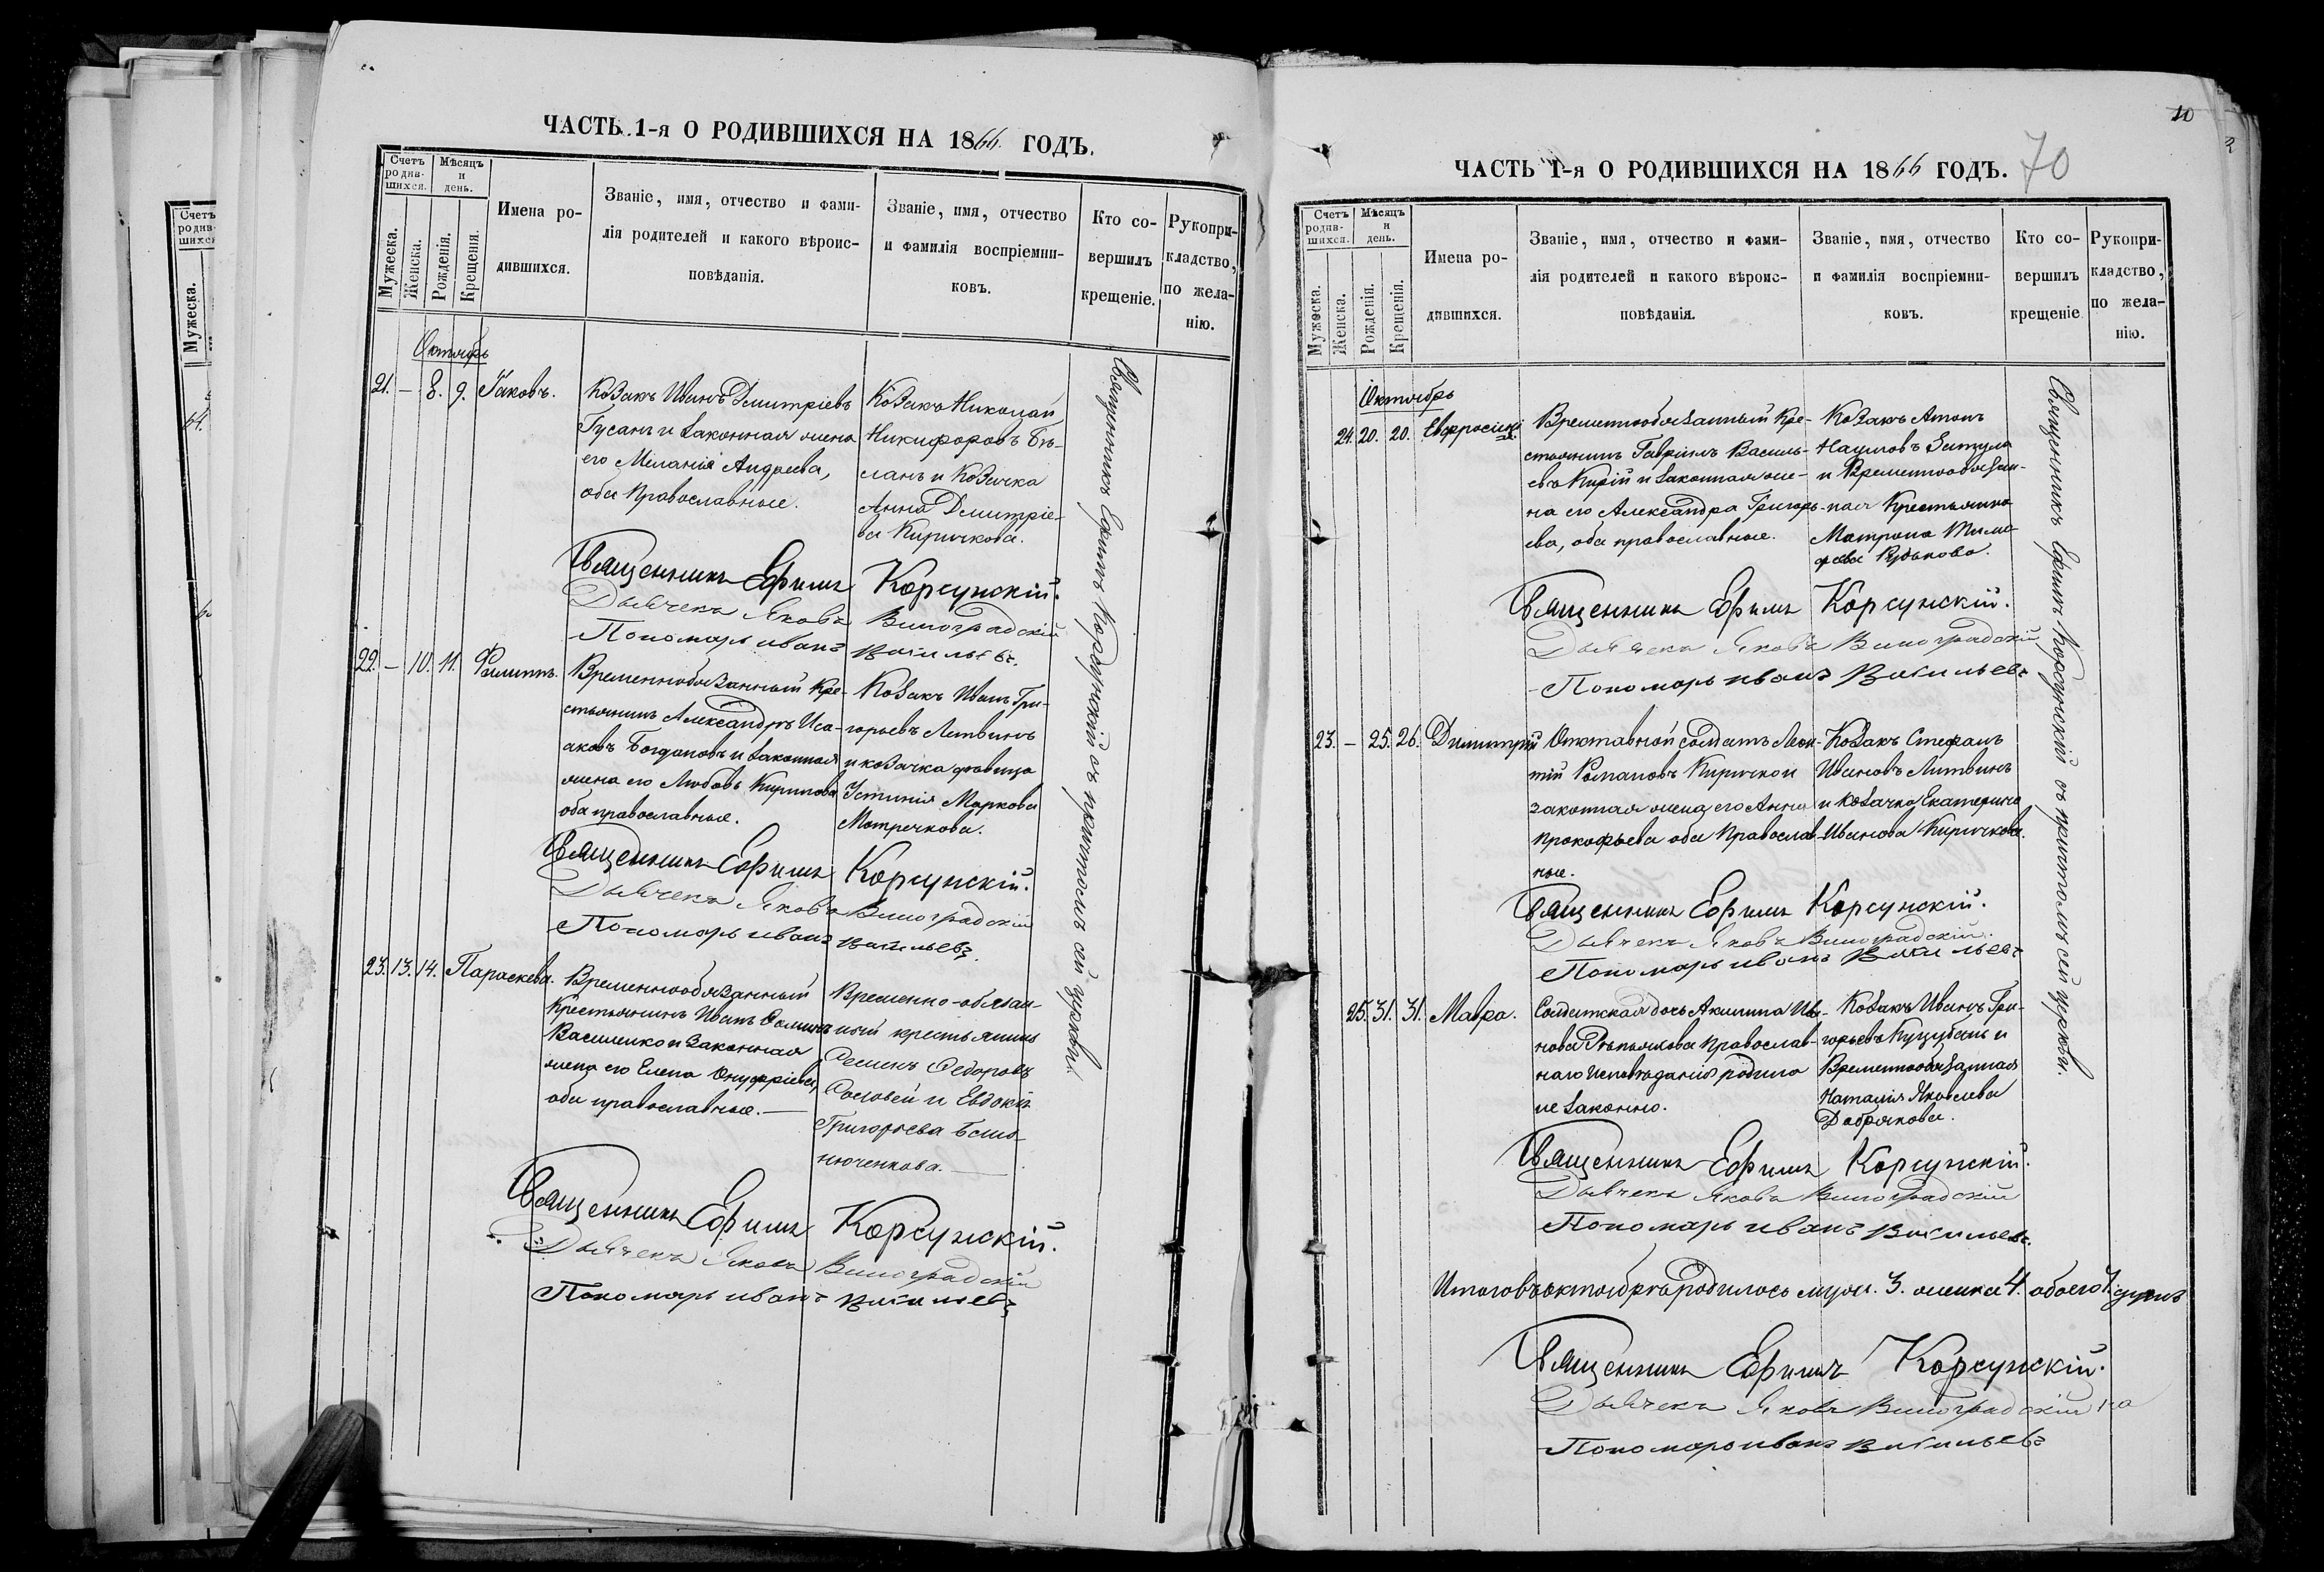 ЧАСТЬ 1-я О РОДИВШИХСЯ НА 1866 ГОДЪ.
Счетъ родив-шихся.
Мѣсяцъ и день.
Мужеска.
Женска.
Рожденія.
Крещенія.
Имена ро-
дившихся.
Званіе, имя, отчество и фами-
лія родителей и какого вѣроис-
повѣданія.
Званіе, имя, отчество
и фамилія воспріемни-
ковъ.
Кто со-
вершилъ
крещеніе.
Рукопри-
кладство,
по жела-
нію.
Октябрь
21. — 8. 9. Іаковъ.
Козакъ Иванъ Дмитріевъ
Гусанъ и законная жена
его Меланія Андреева,
оба Православные.
Козакъ Николай
Никифоровъ Бѣ-
ланъ и Козачка
Анна Дмитріе-
ва Киричкова.
Священникъ Ефимъ Корсунскій съ причтомъ сей церкви.
Священникъ Ефимъ Корсунскій.
Дьячекъ Яковъ Виноградскій
Пономарь иванъ Васильевъ.
22. — 10. 11. Филиппъ.
Временнообязанный Кре-
стьянинъ Александръ Иса-
аковъ Богдановъ и законная
жена его Любовь Кирилова
оба православные.
Козакъ Иванъ Гри-
горьевъ Литвинъ
и козачка дѣвица
Устинія Маркова
Матречкова.
Священникъ Ефимъ Корсунскій.
Дьячекъ Яковъ Виноградскій
Пономарь иванъ васильевъ.
23. 13. 14. Параскева.
Временнообязанный
Крестьянинъ Иванъ Фоминъ
Василенко и Законная
жена его Елена Онуфріева,
оба православные. —
Временно-обязан-
ный крестьянинъ
Семенъ Федоровъ
Соловей и Евдокія
Григорьева
нюченкова. —
Священникъ Ефимъ Корсунскій.
Дьячекъ Яковъ Виноградскій
Пономарь иванъ васильевъ
10
70
ЧАСТЬ 1-я О РОДИВШИХСЯ НА 1866 ГОДЪ.
Счетъ родив-шихся.
Мѣсяцъ и день.
Мужеска.
Женска.
Рожденія.
Крещенія.
Имена ро-
дившихся.
Званіе, имя, отчество и фами-
лія родителей и какого вѣроис-
повѣданія.
Званіе, имя, отчество
и фамилія воспріемни-
ковъ.
Кто со-
вершилъ
крещеніе
Рукопри-
кладство,
по жела-
нію.
Октябрь
24. 20. 20. Евфросинія.
Временнообязанный Кре-
стьянинъ Гавріилъ Василь-
евъ Кирій и законная же-
на его Александра Григорь-
ева, оба православные.
Козакъ Антонъ
Наумовъ Затула
и Временнообязан-
ная Крестьянка
Матрона Тимо-
феева Рудькова.
Священникъ Ефимъ Корсунскій съ причтомъ сей церкви.
Священникъ Ефимъ Корсунскій.
Дьячекъ Яковъ Виноградскій
Пономарь иванъ Васильевъ
23. — 25. 26. Димитрій
Отставной солдатъ Леон-
тій Романовъ Киричко и
законная жена его Анна
Прокофьева оба Православ-
ные.
Козакъ Стефанъ
Ивановъ Литвинъ
и козачка Екатерина
Иванова Киричкова.
Священникъ Ефимъ Корсунскій.
Дьячекъ Яковъ Виноградскій.
Пономарь иванъ Васильевъ
25. 31. 31. Мавра.
Солдатская дочь Акилина Ива-
нова Рѣпьякова православ-
наго исповѣданія родила
незаконно.
Козакъ Иванъ Гри-
горьевъ Куцубань и
Временнообязанная
Наталія Яковлева
Добрякова.
Священникъ Ефимъ Корсунскій.
Дьячекъ Яковъ Виноградскій
Пономарь иванъ васильевъ.
Итого въ октябрѣ родилось муж. 3. женска 4. обоего 7. душъ
Священникъ Ефимъ Корсунскій.
Дьячекъ Яковъ Виноградскій
Пономарь иванъ васильевъ